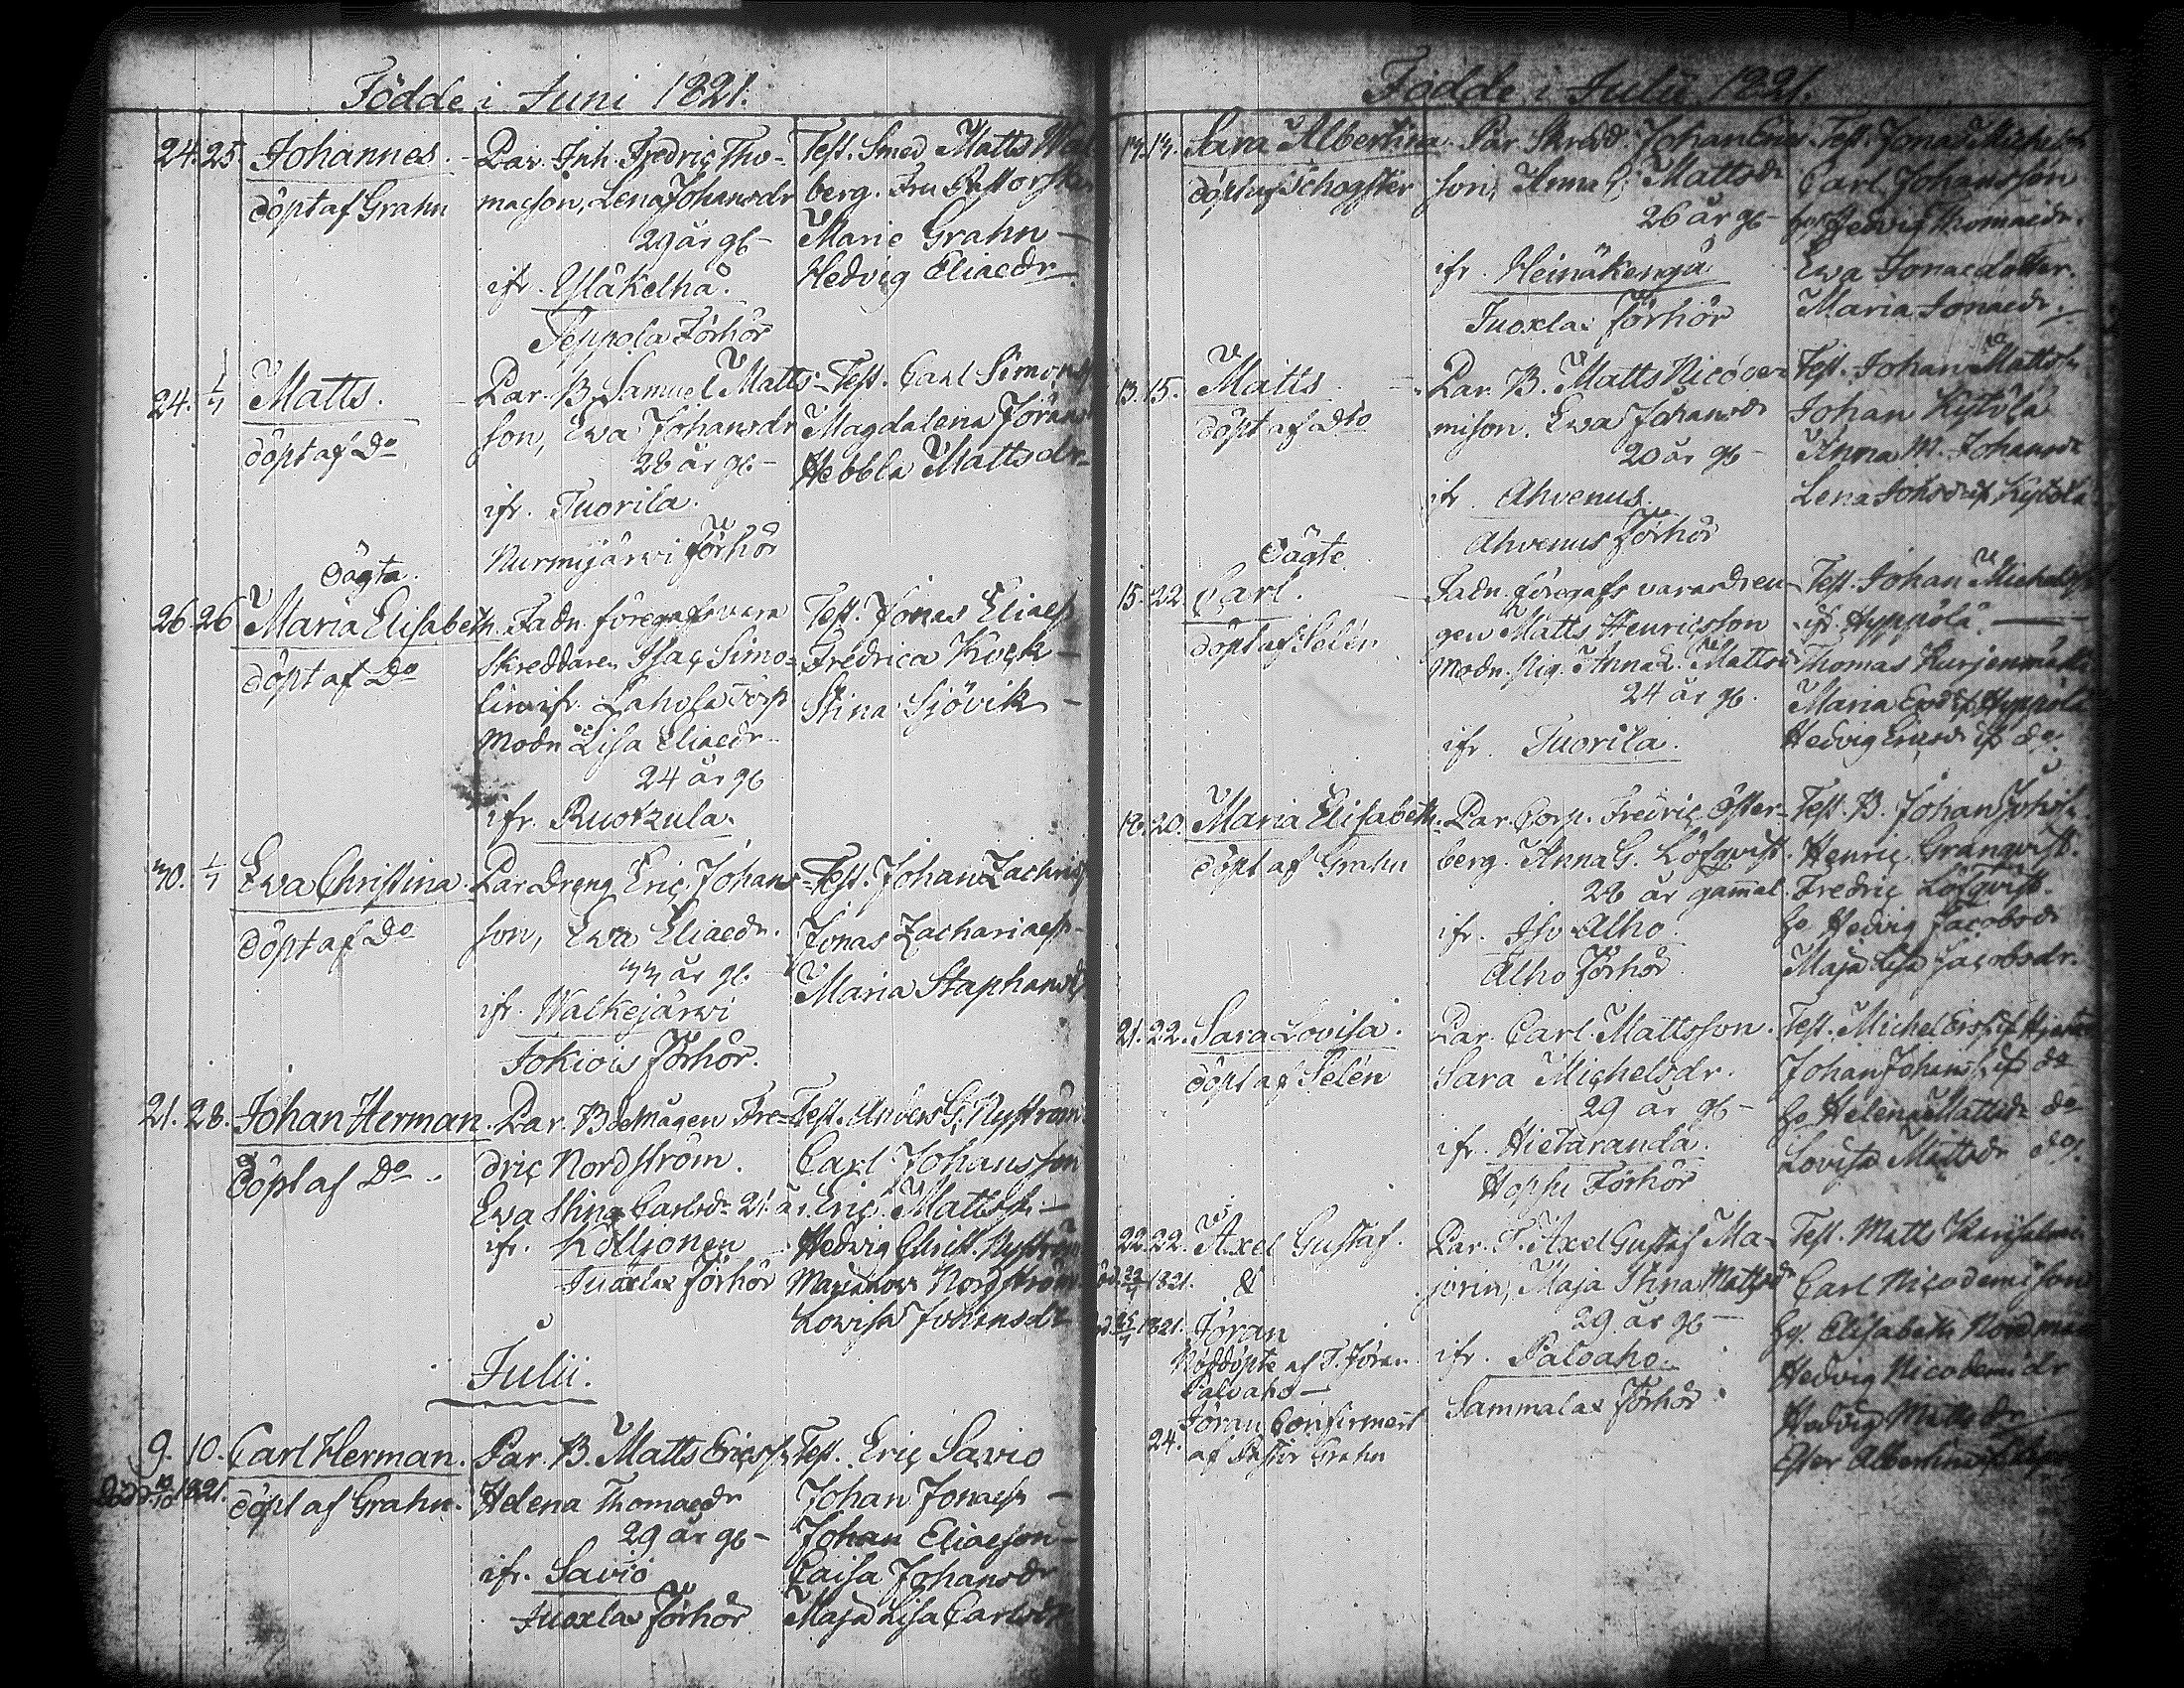 Födde i Juni 1821.
24. 25. Johannes.
döpt af Grahn
Par. Inh. Fredric Tho-
masson, Lena Johansdr
29 år gl-
ifr. Yläkelhä.
Seppola Förhör
Test. Smed Matts
berg. Fru
Marie Grahn -
Hedvig Eliaedr
24. 1/7 Matts.
döpt af Do
Par. B. Samuel Matts-
son, Ewa Johansdr
28 år gl.-
ifr. Tuorila.
Nurmijärwi Förhör
Test. Carl Simons
Magdalena Jörans
Hebbla Mattsdr
Oägta.
26. 26 Maria Elisabeth.
döpt af Do
Fadn. föregafs vara
Skreddaren Isac Simo-
lin ifr. Lahola Torp
Modn Lisa Eliaedr
24 år gl
ifr. Ruotzula.
Test. Jonas Eliaess
Fredrica Kock
Stina Sjövik -
30. 1/7 Ewa Christina.
döpt af Do
Par. Dreng Eric Johans-
son, Ewa Eliaedr.
33 år gl.
ifr. Walkejärwi
Jokiois Förhör.
Test. Johan Zachris
Jonas Zachariaess
Maria Staphansd
21. 28. Johan Herman.
döpt af Do
Par. Fre-
dric Nordström.
Ewa Stina Carlsdr 21 år.
ifr. Kölljonen
Juoxlax Förhör
Test. Anders G. Nyström
Carl Johansson
Eric Mattss. -
Hedvig Christ. Nyström
Nordström
Lowisa Johansdr
Julii.
9. 10. Carl Herman.
Död 1821. döpt af Grahn.
Par. B. Matts Ericss.
Helena Thomaedr
29 år gl-
ifr. Savio
Juoxlax Förhör
Test. Eric Savio
Johan Jonaess -
Johan Eliaeson -
Caisa Johansdr
Maja Lisa Carlsdr
Födde i Julii 1821.
13. 14. Sara Albertina.
döpt af Schogster
Par. Skredd. Johan Erics-
son, Anna C. Mattsdr
26 år gl-
ifr. Heinäkengä
Juoxlax Förhör
Test. Jonas Michelss
Carl Johansson
Hedvig Thomaedr.
Ewa Jonaedotter.
Maria Jonaedr.
13. 15. Matts
döpt af Dto
Par. B. Matts Nicode-
mison. Ewa Johansdr
20 år gl-
ifr. Ahvenus.
Ahvenus Förhör
Test. Johan Mattss
Johan Kytölä
Anna M. Johansdr
Lena Johsdr if Kytölä
Oägte
15. 22 Carl.
döpt af Selén
Fadn. föregafs vara dren-
gen Matts Henricsson
Modn. Pig. Anna L. Mattsdr
24 år gl.
ifr. Tuorila.
Test. Johan Michelss
if. Hyppölä.
Thomas Kurjenmäki
Maria Hyppölä
Hedvig Ericsdr if do
18. 20. Maria Elisabeth.
döpt af Grahn
Par. Corp. Fredric Öster-
berg. Anna G. Löfqvist.
28 år gammal.
ifr. Iso Alho
Alho Förhör
Test. B. Johan Johss
Henric Granqvist.
Fredric Löfqvist.
Hedvig Jacobsdr
Maja Lisa Jacobsdr.
21. 22. Sara Lovisa.
döpt af Selén
Par. Carl Mattsson.
Sara Michelsdr.
29 år gl-
ifr. Hietaranda.
Hopsu Förhör
Test. Michel Erss. if
Johan Johanss. if do
Helena Mattsdr do
Lovisa Mattsdr do.
22. 22. Axel Gustaf.
1821. &
1821. Jöran
Nöddöpte af T. Jöran
Palvaho -
24. Jöran Confirmerat
af Pastor Grahn
Par. T. Axel Gustaf Ma-
jorin, Maja Stina Mattsdr
29 år gl-
ifr. Palvaho.
Sammalax Förhör
Test. Matts
Carl Nicodemisson
Elisabeth Nordman
Hedvig Nicodemi dr
Hedvig Matts dr
Ester Albertina